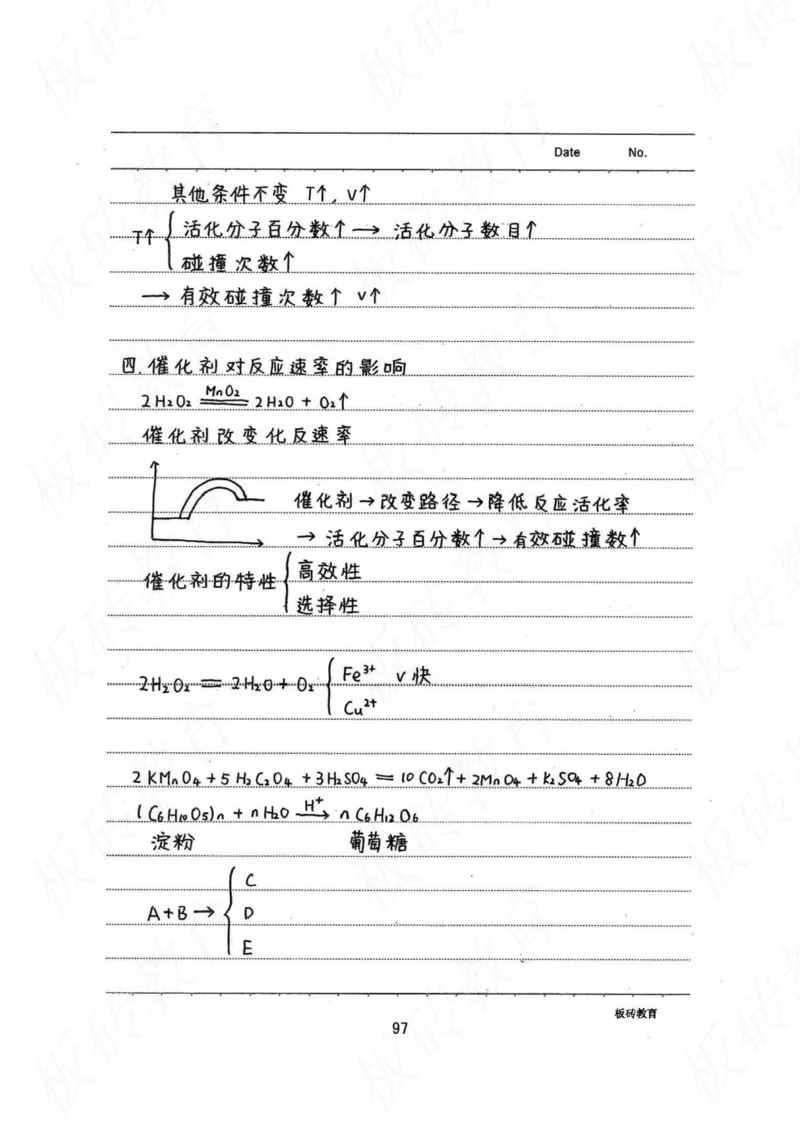 Date No.
其他条件不变 T↑, V↑
T↑ { 活化分子百分数↑ → 活化分子数目↑
碰撞次数↑
→ 有效碰撞次数↑ v↑
四. 催化剂对反应速率的影响
2H₂O₂ =MnO₂= 2H₂O + O₂↑
催化剂改变化反速率
催化剂→改变路径→降低反应活化率
→ 活化分子百分数↑→有效碰撞数↑
催化剂的特性 { 高效性
选择性
2H₂O₂ = 2H₂O + O₂ { Fe³⁺ v快
Cu²⁺
2KMnO₄ + 5H₂C₂O₄ + 3H₂SO₄ = 10CO₂↑ + 2MnO₄ + K₂SO₄ + 8H₂O
(C₆H₁₀O₅)n + nH₂O H⁺→ nC₆H₁₂O₆
淀粉 葡萄糖
A+B→ { C
D
E
板砖教育
97